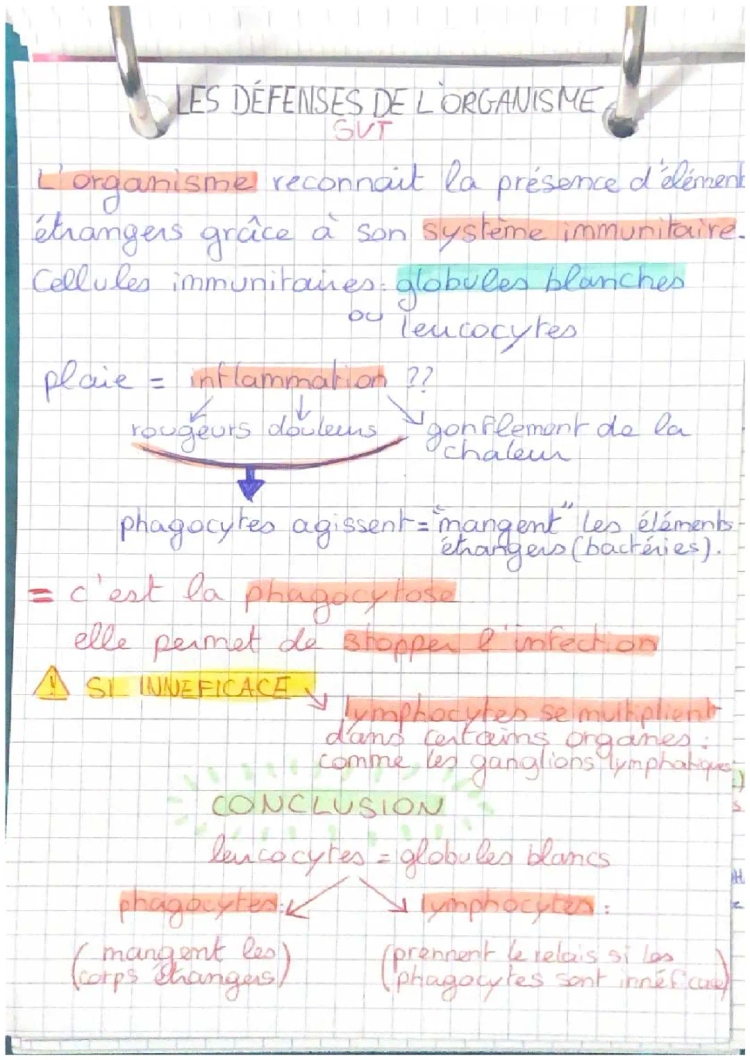 LES DÉFENSES DE L'ORGANISME
SVT
L'organisme reconnait la présence d'élément
étrangers grâce à son système immunitaire.
Cellules immunitaires: globules blanches
ou leucocytes
plaie = inflammation ??
rougeurs douleurs gonflement de la
chaleur
phagocytes agissent = "mangent" les éléments
étrangers (bactéries).
= c'est la phagocytose
elle permet de stopper l'infection
SI INNEFICACE
lymphocytes se multiplient
dans certains organes:
comme les ganglions lymphatiques
CONCLUSION
leucocytes = globules blancs
phagocytes: lymphocytes:
(mangent les (prennent le relais si les
corps étrangers) phagocytes sont innéficace)